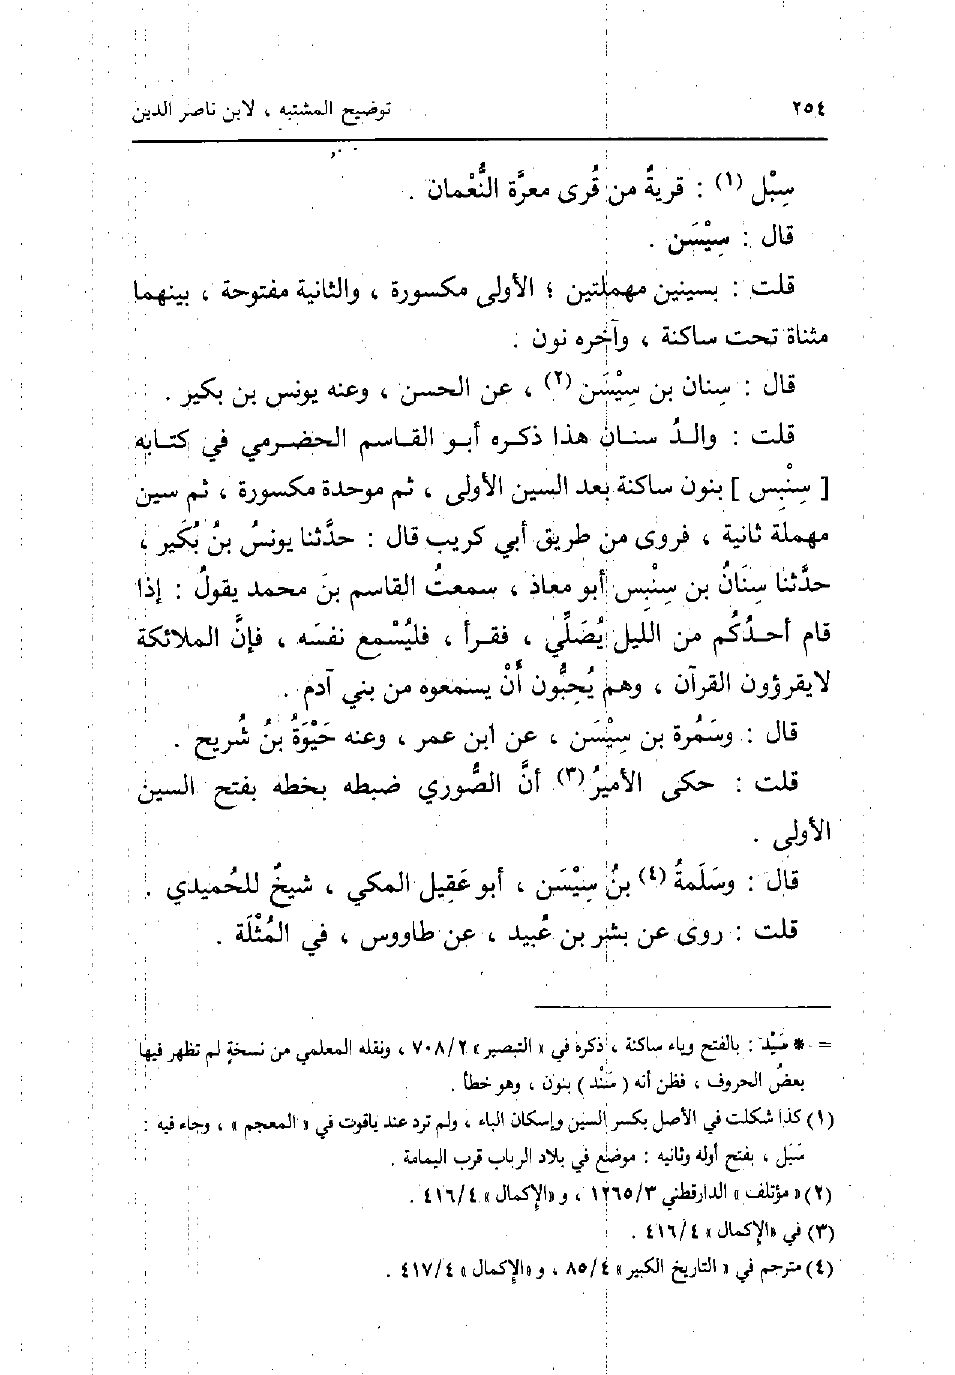 ٢٥٤ توضيح المشتبه ، لابن ناصر الدين
سِبْل (١) : قريةٌ من قُرى معرَّة النُّعْمان .
قال : سِيْسَن .
قلت : بسينين مهملتين ؛ الأولى مكسورة ، والثانية مفتوحة ، بينهما
مثناة تحت ساكنة ، وآخره نون .
قال : سِنان بن سِيْسَن (٢) ، عن الحسن ، وعنه يونس بن بكير .
قلت : والدُ سنان هذا ذكره أبو القاسم الحضرمي في كتابه
[ سِنْبِس ] بنون ساكنة بعد السين الأولى ، ثم موحدة مكسورة ، ثم سين
مهملة ثانية ، فروى من طريق أبي كريب قال : حدَّثنا يونسُ بنُ بُكَير ،
حدَّثنا سِنَانُ بن سِنْبِس أبو معاذ ، سمعتُ القاسم بنَ محمد يقولُ : إذا
قام أحدُكُم من الليل يُصَلِّي ، فقرأ ، فليُسْمع نفسَه ، فإنَّ الملائكة
لايقرؤون القرآن ، وهم يُحِبُّون أَنْ يسمعوه من بني آدم .
قال : وسَمُرة بن سِيْسَن ، عن ابن عمر ، وعنه حَيْوَةُ بنُ شُريح .
قلت : حكى الأميرُ (٣) أنَّ الصُّوري ضبطه بخطه بفتح السين
الأولى .
قال : وسَلَمةُ (٤) بنُ سِيْسَن ، أبو عَقِيل المكي ، شيخٌ للحُميدي .
قلت : روى عن بشر بن عُبيد ، عن طاووس ، في المُثْلَة .
= * سَيْد : بالفتح وياء ساكنة ، ذكره في « التبصير » ٧٠٨/٢ ، ونقله المعلمي من نسخةٍ لم تظهر فيها
بعضُ الحروف ، فظن أنه ( سَنْد ) بنون ، وهو خطأ .
(١) كذا شكلت في الأصل بكسر السين وإسكان الباء ، ولم ترد عند ياقوت في « المعجم » ، وجاء فيه :
سَبَل ، بفتح أوله وثانيه : موضع في بلاد الرباب قرب اليمامة .
(٢) « مؤتلف » الدارقطني ١٢٦٥/٣ ، و «الإكمال » ٤١٦/٤ .
(٣) في «الإكمال » ٤١٦/٤ .
(٤) مترجم في « التاريخ الكبير » ٨٥/٤ ، و «الإكمال » ٤١٧/٤ .